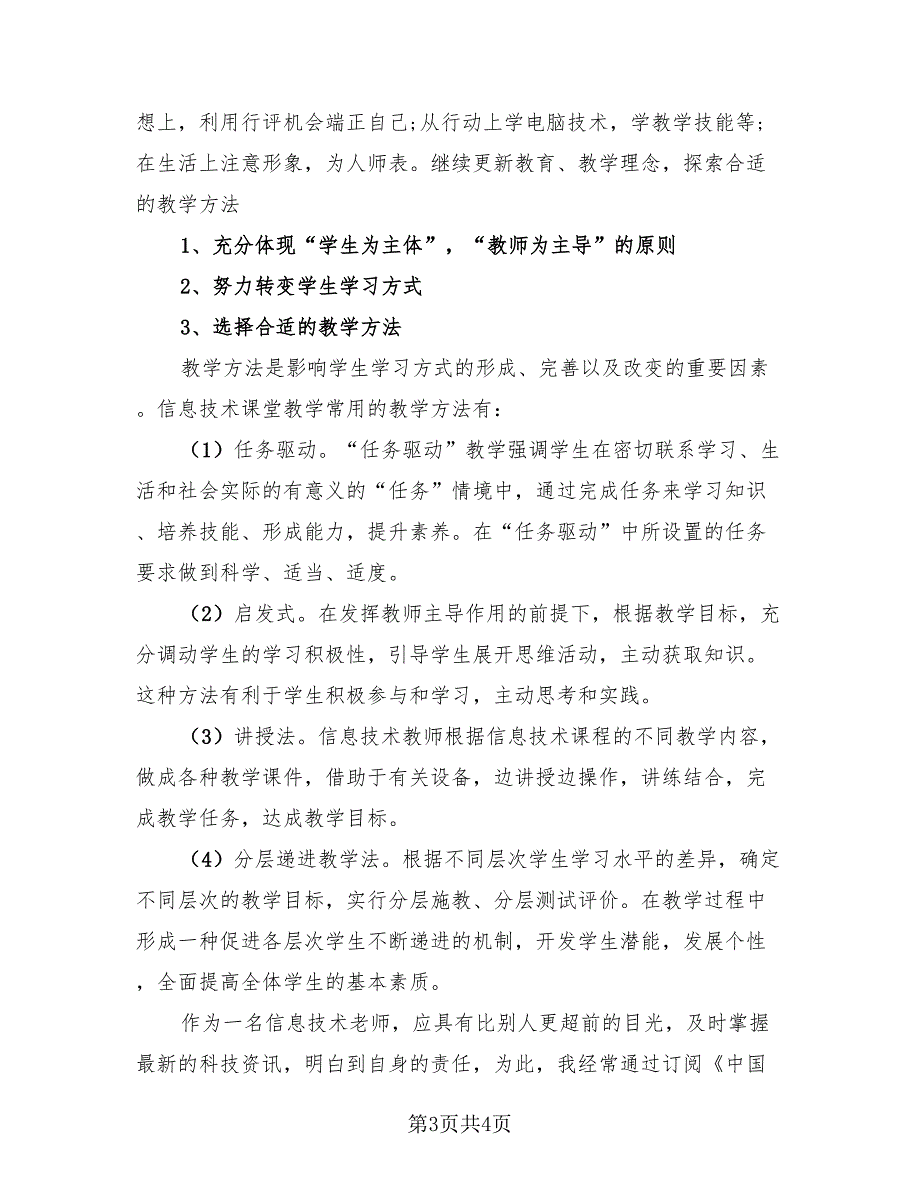 想上，利用行评机会端正自己;从行动上学电脑技术，学教学技能等;
在生活上注意形象，为人师表。继续更新教育、教学理念，探索合适
的教学方法
1、充分体现“学生为主体”，“教师为主导”的原则
2、努力转变学生学习方式
3、选择合适的教学方法
教学方法是影响学生学习方式的形成、完善以及改变的重要因素
。信息技术课堂教学常用的教学方法有：
（1）任务驱动。“任务驱动”教学强调学生在密切联系学习、生
活和社会实际的有意义的“任务”情境中，通过完成任务来学习知识
、培养技能、形成能力，提升素养。在“任务驱动”中所设置的任务
要求做到科学、适当、适度。
（2）启发式。在发挥教师主导作用的前提下，根据教学目标，充
分调动学生的学习积极性，引导学生展开思维活动，主动获取知识。
这种方法有利于学生积极参与和学习，主动思考和实践。
（3）讲授法。信息技术教师根据信息技术课程的不同教学内容，
做成各种教学课件，借助于有关设备，边讲授边操作，讲练结合，完
成教学任务，达成教学目标。
（4）分层递进教学法。根据不同层次学生学习水平的差异，确定
不同层次的教学目标，实行分层施教、分层测试评价。在教学过程中
形成一种促进各层次学生不断递进的机制，开发学生潜能，发展个性
，全面提高全体学生的基本素质。
作为一名信息技术老师，应具有比别人更超前的目光，及时掌握
最新的科技资讯，明白到自身的责任，为此，我经常通过订阅《中国
第3页共4页